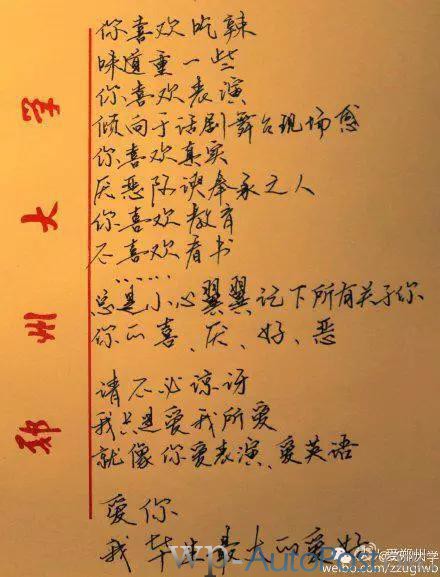 郑州大学
你喜欢吃辣
味道重一些
你喜欢表演
倾向于话剧舞台现场感
你喜欢真实
厌恶阿谀奉承之人
你喜欢教育
不喜欢看书
……
总是小心翼翼记下所有关于你
你的喜、厌、好、恶
请不必谅讶
我只是爱我所爱
就像你爱表演、爱英语
爱你
我毕生最大的爱好
wp-AutoPost
weibo.com/zzugiwb